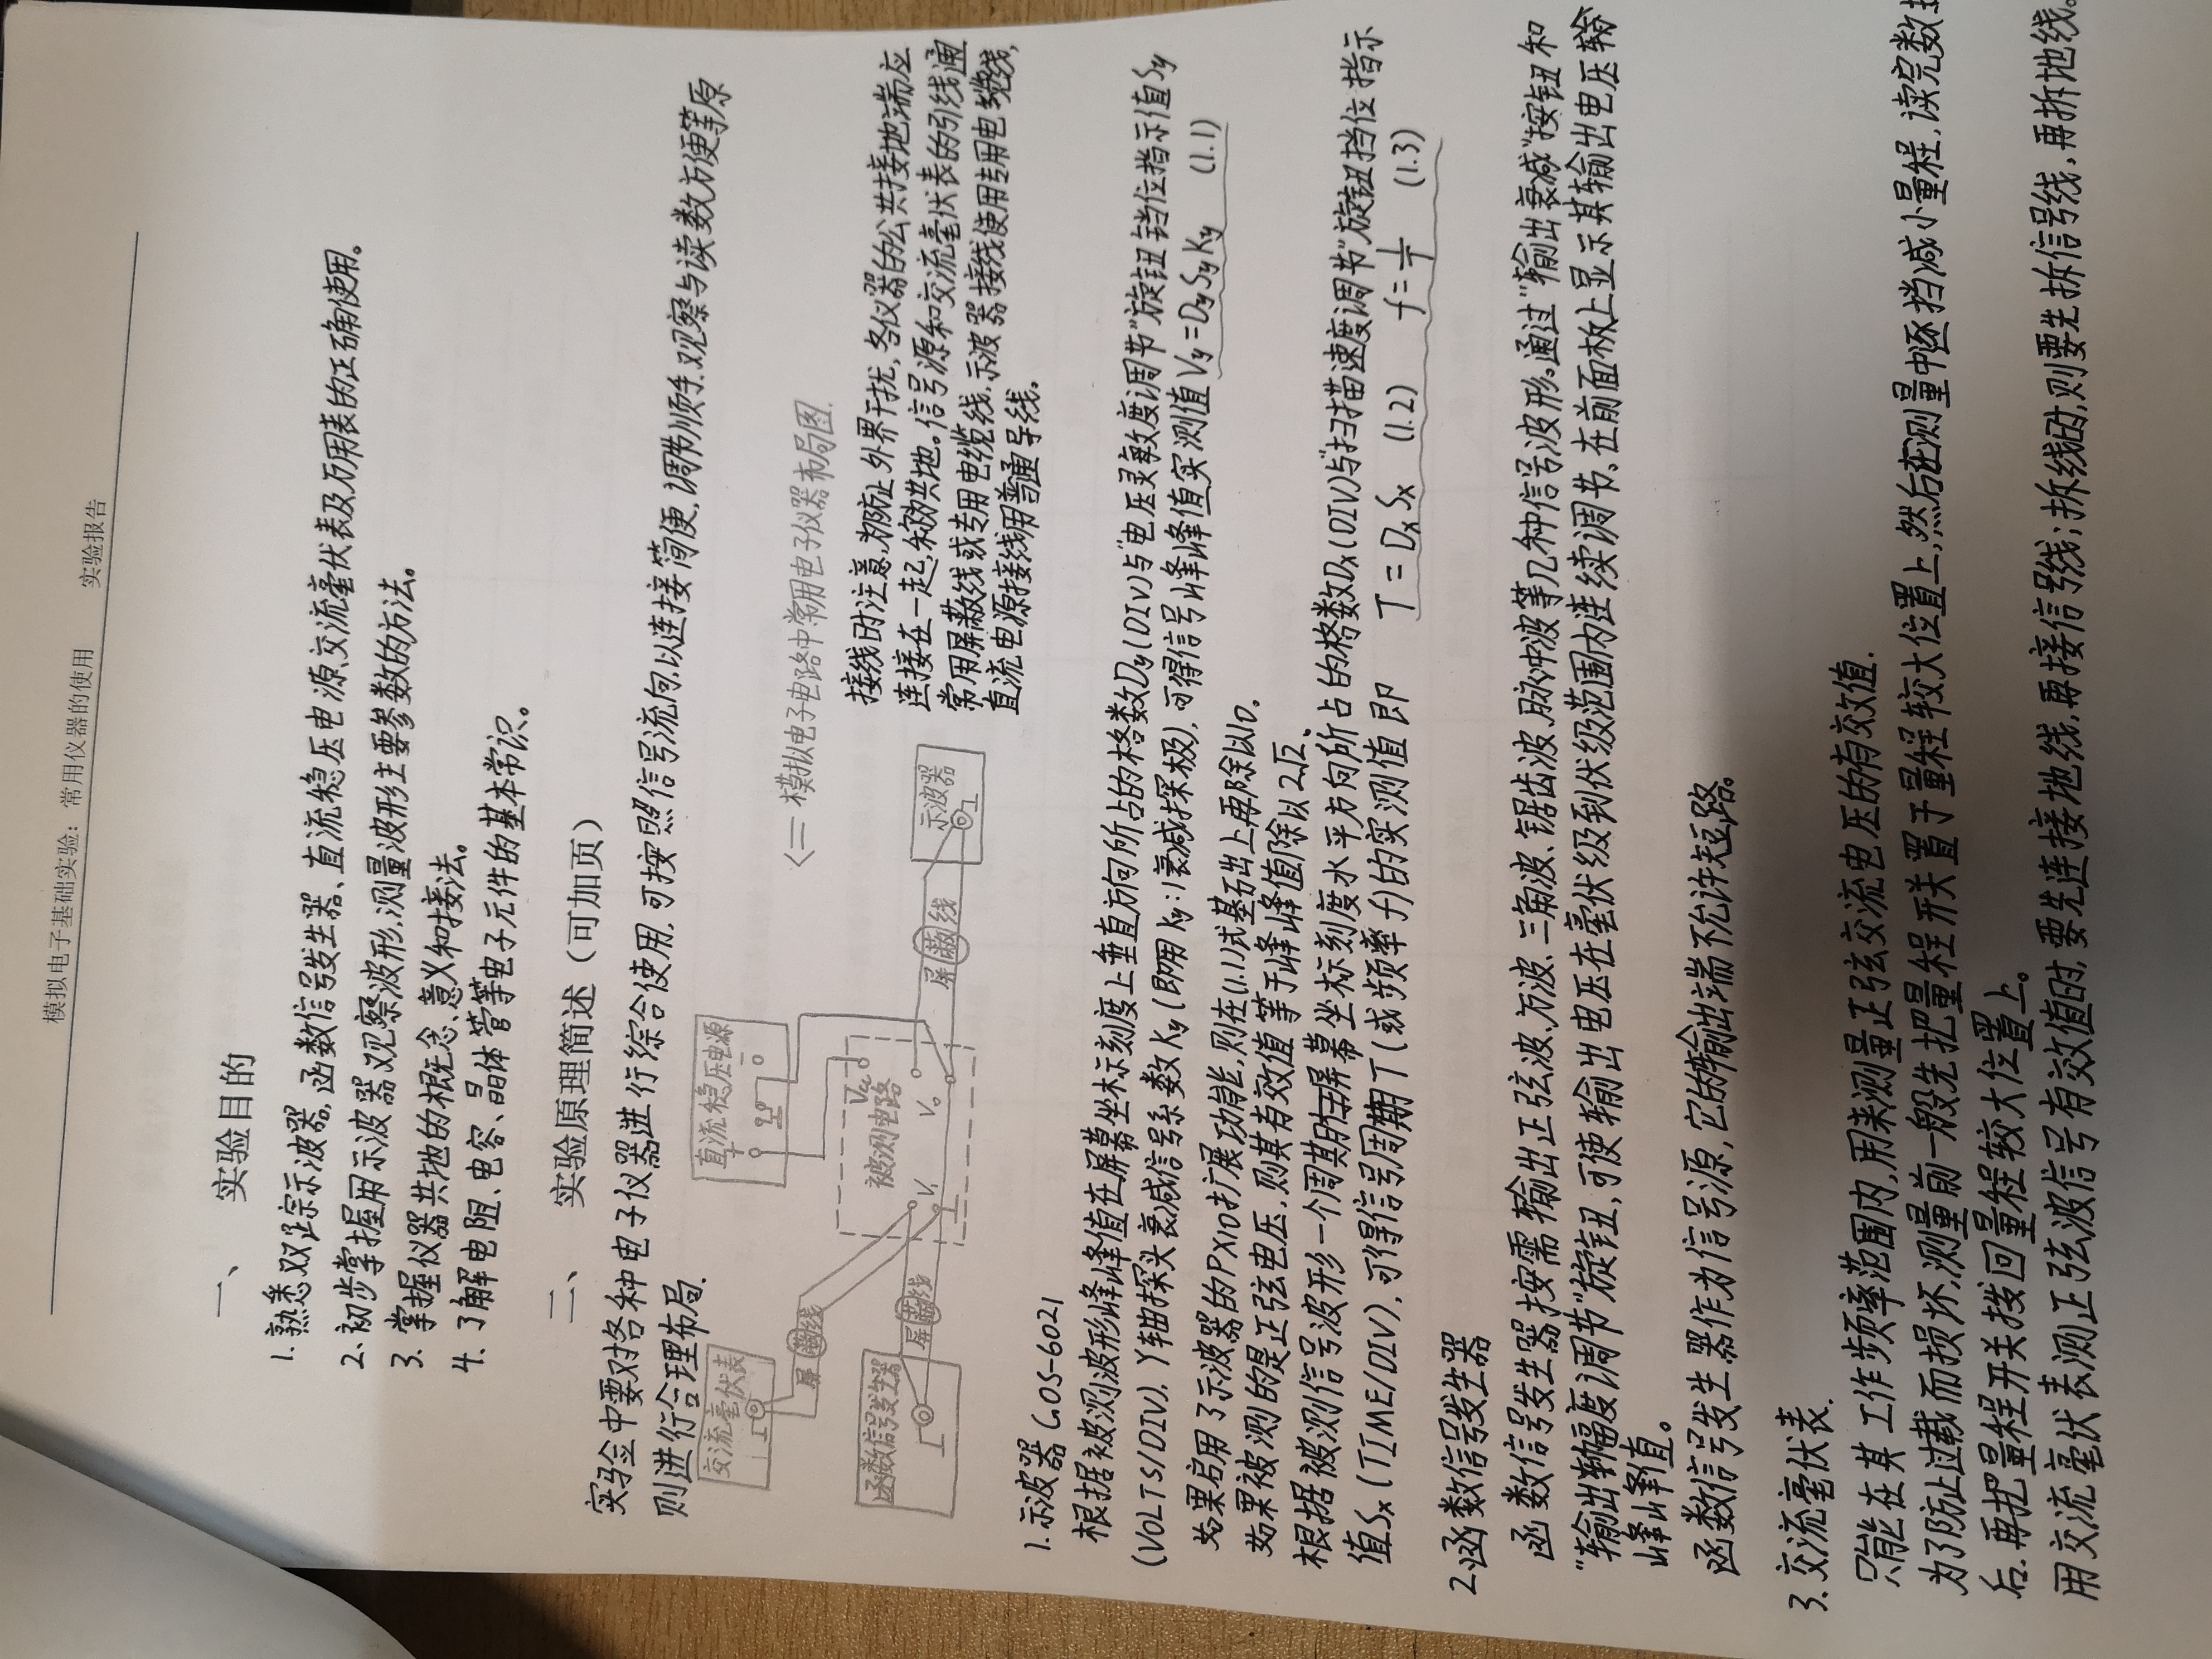 模拟电子基础实验：常用仪器的使用 实验报告
一、 实验目的
1.熟悉双踪示波器,函数信号发生器、直流稳压电源,交流毫伏表及万用表的正确使用。
2.初步掌握用示波器观察波形,测量波形主要参数的方法。
3.掌握仪器共地的概念、意义和接法。
4.了解电阻、电容、晶体管等电子元件的基本常识。
二、 实验原理简述（可加页）
实验中要对各种电子仪器进行综合使用,可按照信号流向,以连接简便,调节顺手,观察与读数方便等原
则进行合理布局.
<= 模拟电子电路中常用电子仪器布局图.
交流毫伏表
屏蔽线
函数信号发生器
屏蔽线
直流稳压电源
+ -
Vcc
被测电路
Vi
Vo
屏蔽线
示波器
接线时注意,为防止外界干扰,各仪器的公共接地端应
连接在一起,称为共地。信号源和交流毫伏表的引线通
常用屏蔽线或专用电缆线,示波器接线使用专用电缆线,
直流电源接线用普通导线。
1.示波器 GOS-6021
根据被测波形峰峰值在屏幕坐标刻度上垂直方向所占的格数Dy(DIV)与"电压灵敏度调节"旋钮挡位指示值Sy
(VOLTS/DIV)、Y轴探头衰减信号系数Ky(即用Ky:1衰减探极),可得信号峰峰值实测值 Vy=DySyKy (1.1)
如果启用了示波器的PX10扩展功能,则在(1.1)试基础上再除以10。
如果被测的是正弦电压,则其有效值等于峰峰值除以2√2、
根据被测信号波形一个周期的屏幕坐标刻度水平方向所占的格数Dx(DIV)与"扫描速度调节"旋钮挡位指示
值Sx(TIME/DIV),可得信号周期T(或频率f)的实测值即 T=DxSx (1.2) f=1/T (1.3)
2.函数信号发生器
函数信号发生器按需输出正弦波、方波、三角波、锯齿波,脉冲波等几种信号波形。通过"输出衰减"按钮和
"输出幅度调节"旋钮,可使输出电压在毫伏级到伏级范围内连续调节、在前面板上显示其输出电压
峰峰值。
函数信号发生器作为信号源,它的输出端不允许短路。
3.交流毫伏表.
只能在其工作频率范围内,用来测量正弦交流电压的有效值.
为了防止过载而损坏,测量前一般先把量程开关置于量程较大位置上,然后在测量中逐挡减小量程,读完数
后,再把量程开关拨回量程较大位置上。
用交流毫伏表测正弦波信号有效值时,要先连接地线,再接信号线；拆线时,则要先拆信号线,再拆地线。